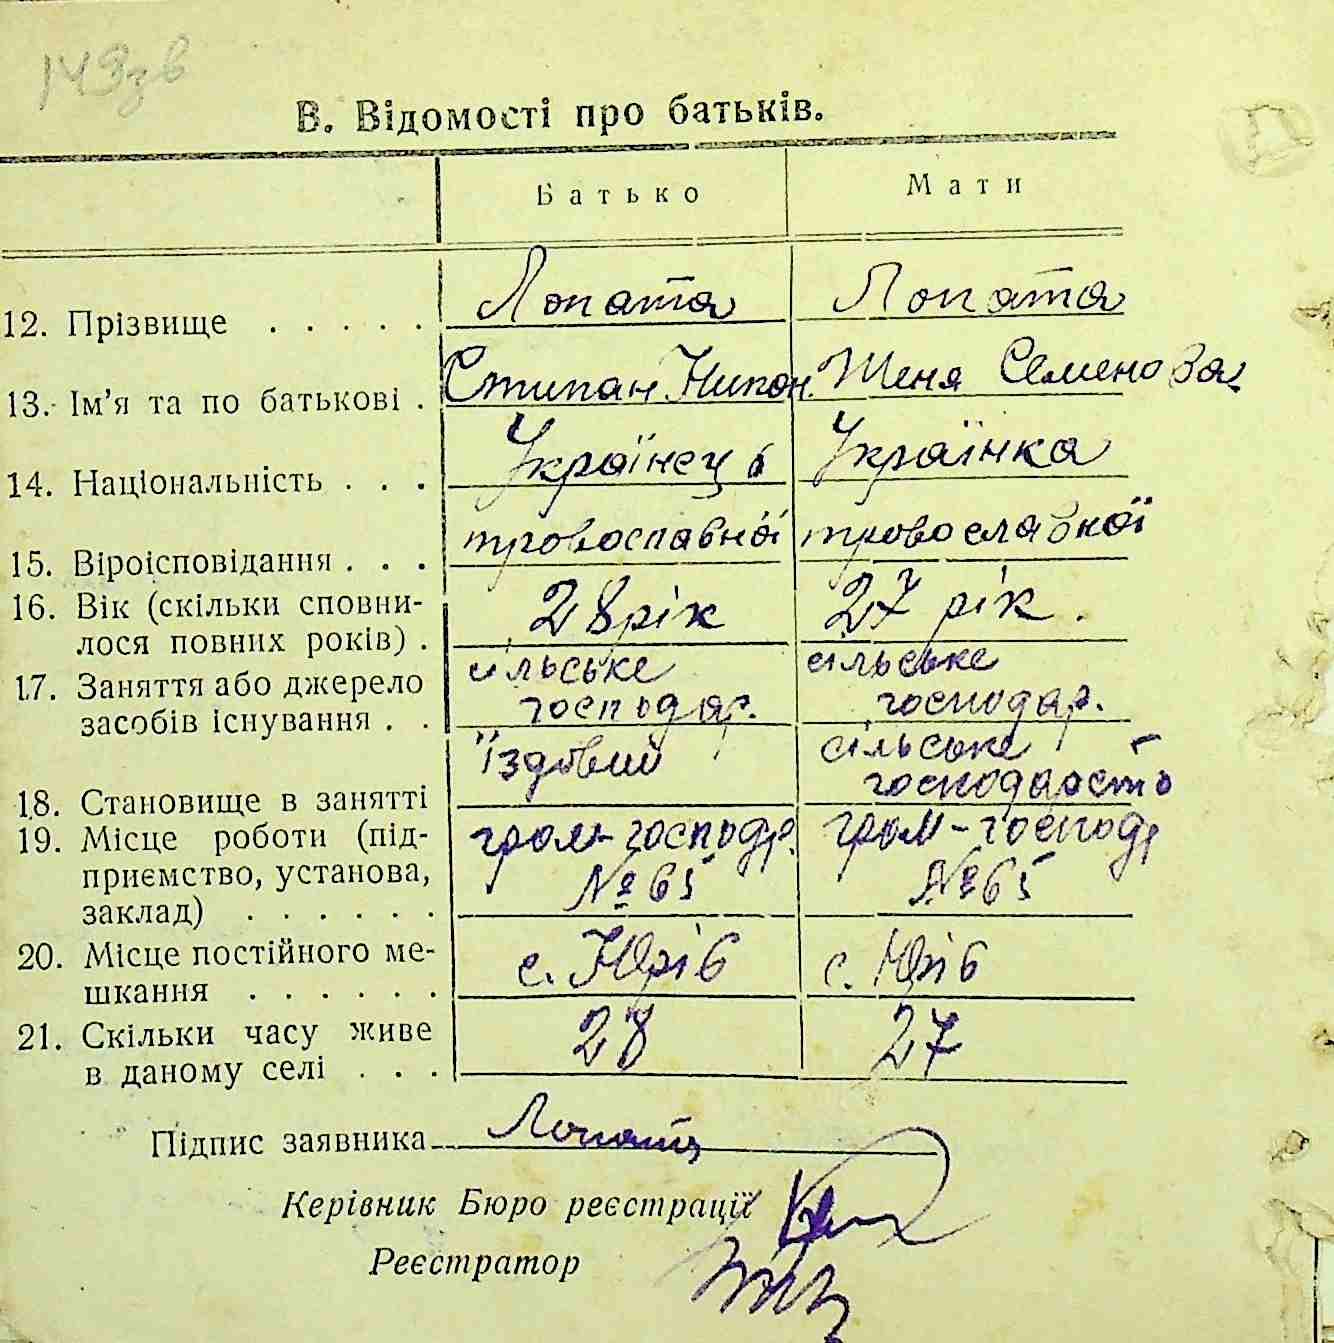 143зв
В. Відомості про батьків.
Батько Мати
12. Прізвище . . . . . Лопата Лопата
13. Ім'я та по батькові . Стипан Нипон. Женя Семенова
14. Національність . . . Українець Українка
15. Віроісповідання . . . провославної провославной
16. Вік (скільки сповни-
лося повних років) . 28 рік 27 рік.
17. Заняття або джерело сільське сільське
засобів існування . . господар. господар.
їздовий сільське
18. Становище в занятті господарсть
19. Місце роботи (під- гром-господр. гром-господр
приємство, установа, № 65 № 65
заклад) . . . . . .
20. Місце постійного ме- с. Юрів с. Юрів
шкання . . . . . .
21. Скільки часу живе 28 27
в даному селі . . .
Підпис заявника Лопата
Керівник Бюро реєстрації
Реєстратор